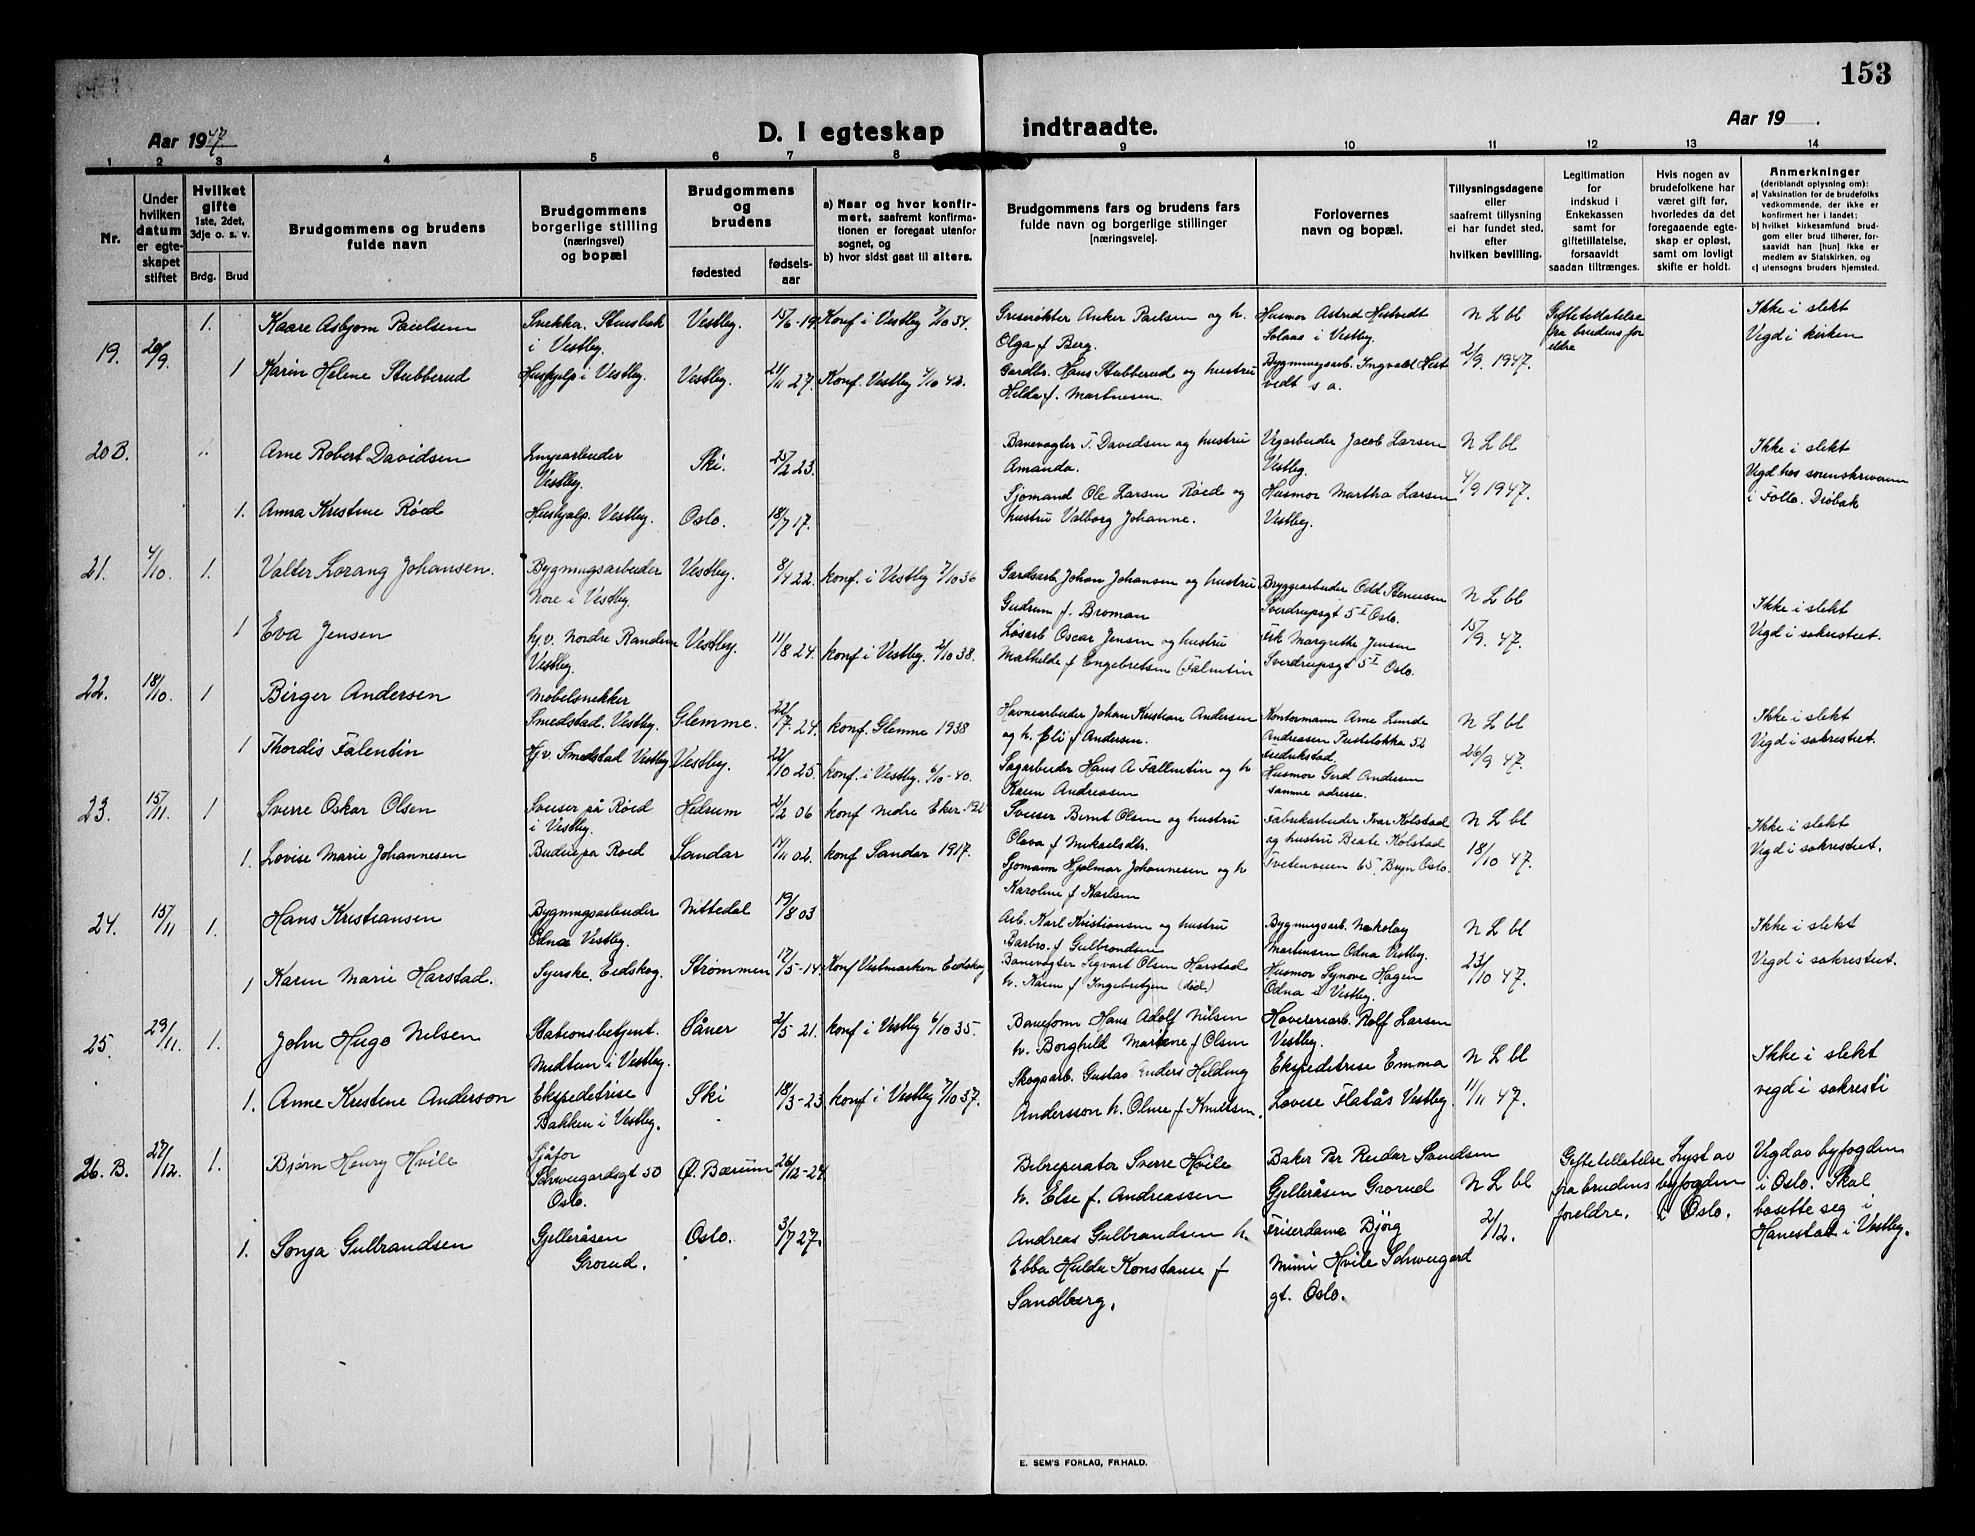 153
Aar 1947.
D. I egteskap indtraadte.
Aar 19 .
1 2 3 4 5 6 7 8 9 10 11 12 13 14
Nr.
Under hvilken datum er egteskapet stiftet
Hvilket gifte 1ste, 2det, 3dje o. s. v.
Brdg. Brud
Brudgommens og brudens fulde navn
Brudgommens borgerlige stilling (næringsvei) og bopæl
Brudgommens og brudens
fødested fødselsaar
a) Naar og hvor konfirmert, saafremt konfirmationen er foregaat utenfor sognet, og
b) hvor sidst gaat til alters.
Brudgommens fars og brudens fars fulde navn og borgerlige stillinger [næringsveie].
Forlovernes navn og bopæl.
Tillysningsdagene eller saafremt tillysning ei har fundet sted, efter hvilken bevilling.
Legitimation for indskud i Enkekassen samt for giftetillatelse, forsaavidt saadan tiltrænges.
Hvis nogen av brudefolkene har været gift før, hvorledes da det foregaaende egteskap er opløst, samt om lovligt skifte er holdt.
Anmerkninger (deriblandt oplysning om):
a) Vaksination for de brudefolks vedkommende, der ikke er konfirmert her i landet;
b) hvilket kirkesamfund brudgom eller brud tilhører, forsaavidt han [hun] ikke er medlem av Statskirken, og
c) utensogns bruders hjemsted.
19. 20/9 1. Kaare Asbjørn Paulsen Snekker. Stensbak i Vestby. Vestby. 15/6-19 Konf i Vestby 7/10 34. Griserøkter Anker Paulsen og h. Olga f Berg. Husmor Astrid Hestvedt Solaas i Vestby. N L bl 2/9. 1947. Giftetillatelse fra brudens foreldre Ikke i slekt Vigd i kirken
1 Karin Helene Stubberud Hushjelp i Vestby. Vestby. 21/11 27. Konf. Vestby 4/10 42. Gardbr. Hans Stubberud og hustru Helda f. Martinesen. Bygningsarb. Ingvald Hestvedt s a.
20 B. Arne Robert Davidsen Vestby. Ski. 25/2 23. Banevogter T. Davidsen og hustru Amanda. Vegarbeider Jacob Larsen Vestby. N L bl 4/9 1947. Ikke i slekt Vigd hos sorenskriveren i Follo. Drøbak
1. Anna Kristine Røed Hushjelp. Vestby. Oslo. 18/7 17. Sjømand Ole Larsen Røed og hustru Valborg Johanne. Husmor Martha Larsen Vestby.
21. 4/10. 1. Valter Lorang Johansen. Bygningsarbeider Nore i Vestby. Vestby. 8/4 22. konf. i Vestby 7/10 36 Gardsarb. Johan Johansen og hustru Gudrun f. Broman Bryggearbeider Odd Stenersen Sverdrupsgt 5 I Oslo. N L bl 15/9. 47. Ikke i slekt Vigd i sakrestiet.
1 Eva Jensen hj.v. Nordre Randem Vestby. Vestby. 11/8 24. konf i Vestby. 2/10 38. Løsarb Oscar Jensen og hustru Mathilde f Engebretsen (Falentin Frk Margrethe Jensen Sverdrupsgt 5 I Oslo.
22. 18/10. 1 Birger Andersen Møbelsnekker Smedstad. Vestby. Glemme. 22/7. 24. konf. Glemme 1938 Havnearbeider Johan Kristian Andersen og h. Eli f Andersen. Kontormann Arne Lunde Andreasen Pustelokka 52 Fredrikstad. N L bl 26/9 47. Ikke i slekt Vigd i sakrestiet.
1 Thordis Falentin Hj.v. Smedstad Vestby Vestby. 22/10 25. konf. i Vestby. 6/10-40. Sagarbeider Hans A Fallentin og h Karen Andreasen Husmor Gerd Andersen samme adresse.
23. 15/11. 1 Sverre Oskar Olsen Sveiser på Røed i Vestby. 2/2 06 konf nedre Eker 192 Sveiser Bernt Olsen og hustru Olava f Mikaelsdtr. Fabrikarbeider Ivar Kolstad og hustru Beate Kolstad Tvetenveien 65, Bryn Oslo. N L bl 18/10 47. Ikke i slekt Vigd i sakrestiet.
1. Lovise Marie Johannesen Budeie på Røed Sandar 14/11 02. konf Sandar 1917. Sjømann Hjalmar Johannesen og h Karoline f Karlsen
24. 15/11 1. Hans Kristiansen Bygningsarbeider Odna Vestby. Nittedal 19/8 03 Arb. Karl Kristiansen og hustru Barbro. f Gulbrandsen Bygningsarb. Nikolay Martinsen Odna Vestby. N L bl 23/10 47. Ikke i slekt Vigd i sakrestiet.
1 Karen Marie Harstad. Syerske. Eidskog. Strømmen 12/5-14 Konf Vestmarken Eidskog Banevogter Sigvart Olsen Harstad h. Karen f Ingebretsen (død.) Husmor Synove Hagen Odna i Vestby.
25. 29/11. 1. John Hugo Nilsen Stationsbetjent. Midtun i Vestby. Såner 2/5 21. konf i Vestby 6/10 35. Baneform Hans Adolf Nilsen h. Borghild Marlene f Olsen Havereriarb. Rolf Larsen Vestby. N L bl 11/11 47. Ikke i slekt vegd i sakresti
1. Anne Kristine Anderson Ekspeditrise Bakken i Vestby. Ski 18/3-23 konf i Vestby 7/10 37. Skogsarb. Gustav Anders Helding Andersson h. Olme f Knutsen. Ekspeditrise Emma Lovise Flatås Vestby.
26. B. 27/12. 1. Bjørn Henry Hvile Sjåfør Schweigardsgt 50 Oslo. Ø. Bærum 26/12-24 Bilreperatør Sverre Hvile h. Else f. Andreassen Baker Per Reidar Sandsen Gjelleråsen Grorud N L bl 2/12. Giftetillatelse fra brudens foreldre. Lyst av byfogden i Oslo. Vegd av byfogden i Oslo. Skal bosette seg i Hanestad i Vestby.
1. Sonja Gulbrandsen Gjelleråsen Grorud. Oslo. 3/7 27. Andreas Gulbrandsen h. Ebba Hulda Konstanse f Sandberg. Friserdame Bjørg Mimi Hvile Schweigardgt. Oslo.
E. SEM'S FORLAG, FR.HALD.